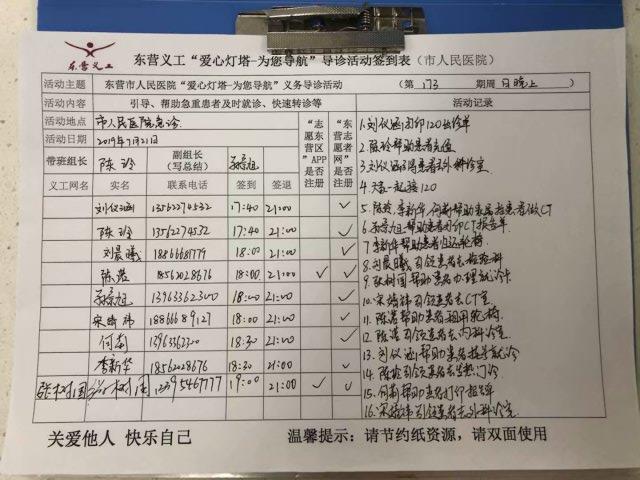 东营义工
东营义工“爱心灯塔-为您导航”导诊活动签到表(市人民医院)
活动主题 东营市人民医院“爱心灯塔-为您导航”义务导诊活动 (第 173 期周 日晚上 )
活动内容 引导、帮助急重患者及时就诊、快速转诊等
活动地点 市人民医院急诊
活动日期 2019年7月21日
带班组长 陈玲 副组长(写总结)
义工网名 实名 联系电话 签到 签退 “志愿东营区”APP是否注册 “东营志愿者网”是否注册
刘仪涵 13562274532 17:40 21:00 ✓
陈玲 13562274532 17:40 21:00 ✓
刘晨曦 18866681779 18:00 21:00 ✓
陈浩 18562028676 18:00 21:00 ✓ ✓
139633623 18:00 21:00 ✓
宋晴祎 18866689127 18:00 21:00 ✓
何南 1396336 18:30 21:00 ✓
李新华 18562028676 18:30 21:00 ✓
张树国 张树国 5467777 19:00 21:00 ✓ ✓
活动记录
1.刘仪涵打印120出诊单
2.陈玲帮助患者充值
3.刘仪涵 患者 外科诊室
4.大家一起接120
5.陈玲,李新华,何南帮助 患者做CT
6. 帮助患者打印CT报告单
7.李新华帮助患者归还轮椅
8.刘晨曦引领患者去检验科
9.张树国帮助患者办理就诊卡
10.宋晴祎引领患者去CT室
11.陈浩帮助患者租用轮椅
12.陈浩引领患者去内科诊室
13.刘仪涵帮助患者 就诊
14.陈玲引领患者去发热门诊
15.何南帮助患者打印报告单
16.宋晴祎引领患者去外科诊室
关爱他人 快乐自己 温馨提示:请节约纸资源,请双面使用